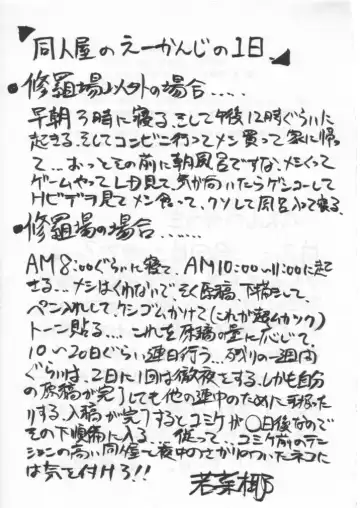 同人屋のえーかんじの1日
●修羅場以外の場合.....
早朝3時に寝る、そして午後12時ぐらいに
起きる。そしてコンビニ行ってメシ買って家に帰っ
て...おっとその前に朝風呂ですな、メシくって
ゲームやってLD見て、気が向いたらゲンコーして
Hビデオ見てメシ食って、クソして風呂入って寝る。
●修羅場の場合......
AM8:00ぐらいに寝て、AM10:00〜11:00に起
きる...メシはくわないで、そく原稿、下描きして、
ペン入れして、ケシゴムかけて(これが超ムカツク)
トーン貼る....これを原稿の量に応じて、
10〜20日ぐらい連日行う...残りの一週間
ぐらいは、2日に1回は徹夜をする。しかも自分
の原稿が完了しても他の連中のために手伝った
りする。入稿が完了するとコミケが〇日後なので
その下準備に入る...従って、コミケ前のテン
ションの高い同人屋と夜中のさかりのついたネコに
は気を付けろ!!
若菜椰